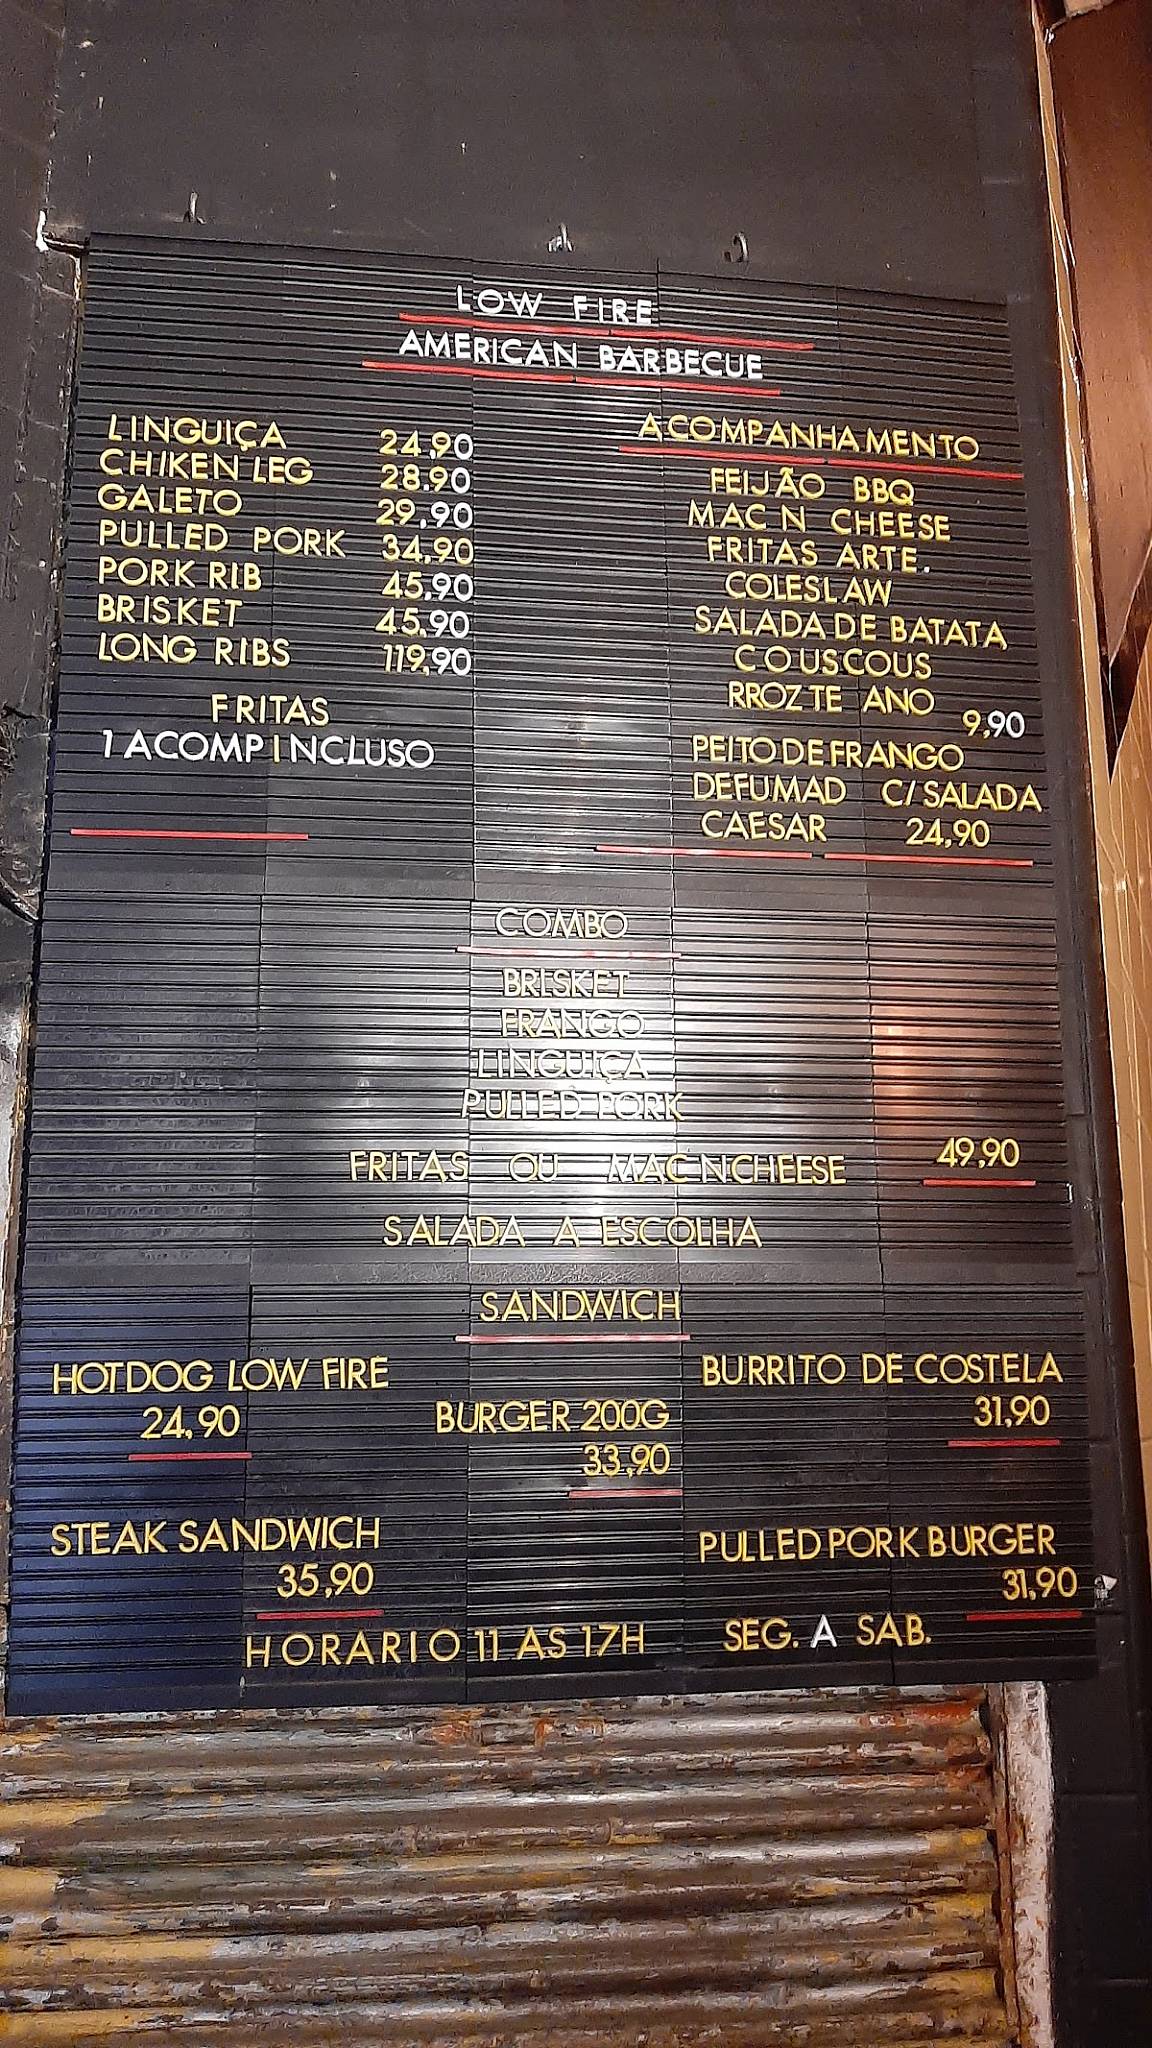 LOW FIRE
AMERICAN BARBECUE
LINGUIÇA 24,90
CHIKEN LEG 28,90
GALETO 29,90
PULLED PORK 34,90
PORK RIB 45,90
BRISKET 45,90
LONG RIBS 119,90
FRITAS
1 ACOMP INCLUSO
ACOMPANHAMENTO
FEIJÃO BBQ
MAC N CHEESE
FRITAS ARTE.
COLESLAW
SALADA DE BATATA
COUSCOUS
RROZ TE ANO
9,90
PEITO DE FRANGO
DEFUMAD C/ SALADA
CAESAR 24,90
COMBO
BRISKET
FRANGO
LINGUIÇA
PULLED PORK
FRITAS OU MAC N CHEESE 49,90
SALADA A ESCOLHA
SANDWICH
HOTDOG LOW FIRE
24,90
BURGER 200G
33,90
BURRITO DE COSTELA
31,90
STEAK SANDWICH
35,90
PULLED PORK BURGER
31,90
HORARIO 11 AS 17H SEG. A SAB.